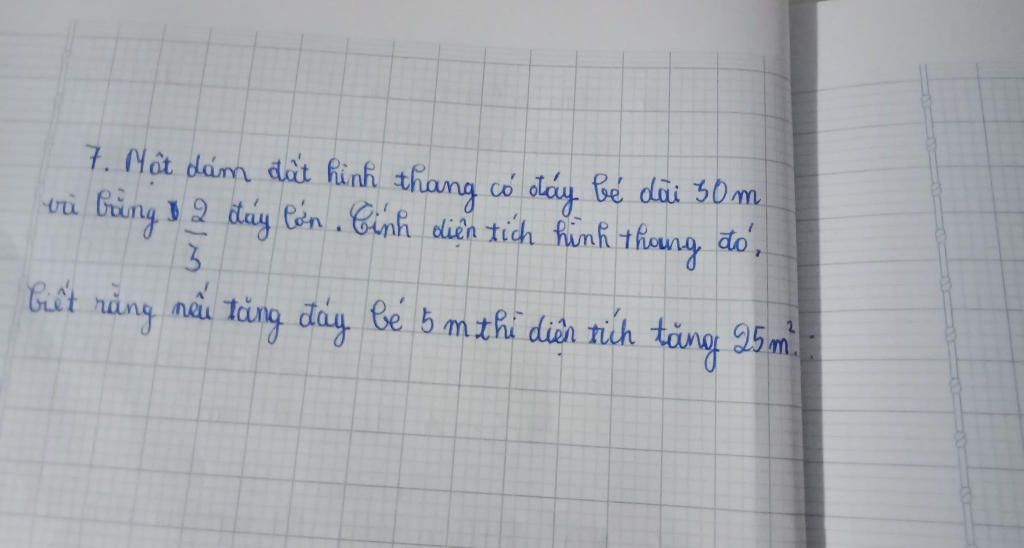 7. Một dám đất hình thang có đáy bé dài 30m
và bằng 2/3 đáy lớn. Tính diện tích hình thang đó,
biết rằng nếu tăng đáy bé 5m thì diện tích tăng 25m².